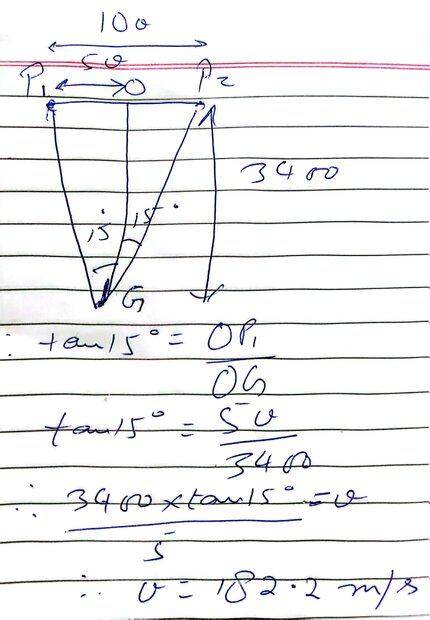 10υ
5υ
P₁ O P₂
3400
15° 15°
G
∴ tan15° = OP₁/OG
tan15° = 5υ/3400
∴ 3400×tan15°/5 = υ
∴ υ = 182.2 m/s